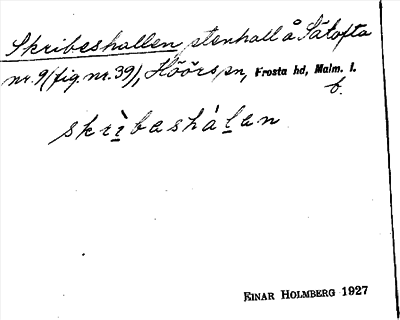 Skribeshallen stenhall å Sätofta
nr. 9 (fig. nr. 39), Höörs sn, Frosta hd, Malm. l.
f.
skrìbeshálan
EINAR HOLMBERG 1927